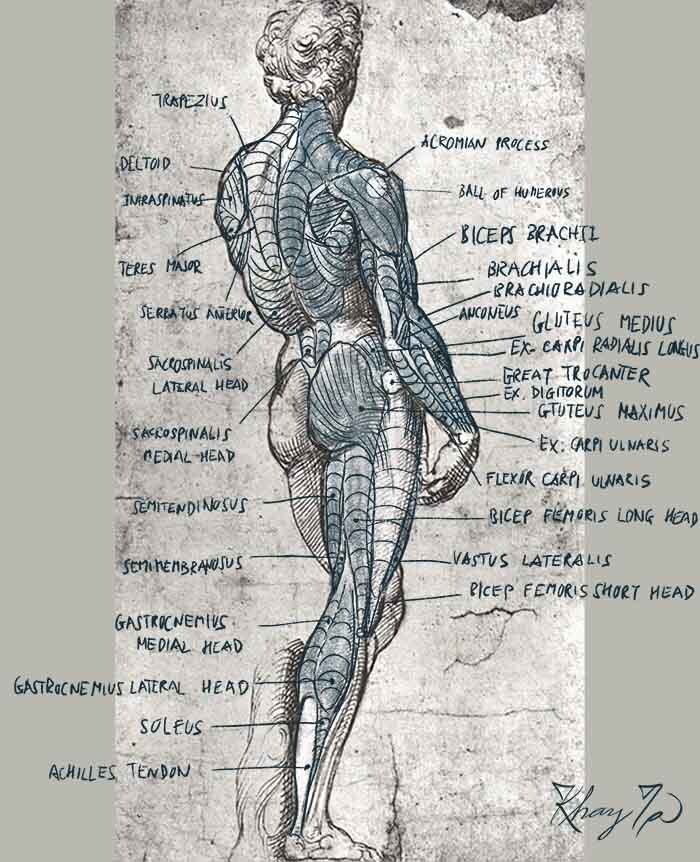 TRAPEZIUS
DELTOID
INFRASPINATUS
TERES MAJOR
SERRATUS ANTERIOR
SACROSPINALIS
LATERAL HEAD
SACROSPINALIS
MEDIAL HEAD
SEMITENDINOSUS
SEMIMEMBRANOSUS
GASTROCNEMIUS
MEDIAL HEAD
GASTROCNEMIUS LATERAL HEAD
SOLEUS
ACHILLES TENDON
ACROMIAN PROCESS
BALL OF HUMEROUS
BICEPS BRACHII
BRACHIALIS
BRACHIORADIALIS
ANCONEUS
GLUTEUS MEDIUS
EX- CARPI RADIALIS LONGUS
GREAT TROCANTER
EX. DIGITORUM
GTUTEUS MAXIMUS
EX. CARPI ULNARIS
FLEXOR CARPI ULNARIS
BICEP FEMORIS LONG HEAD
VASTUS LATERALIS
BICEP FEMORIS SHORT HEAD